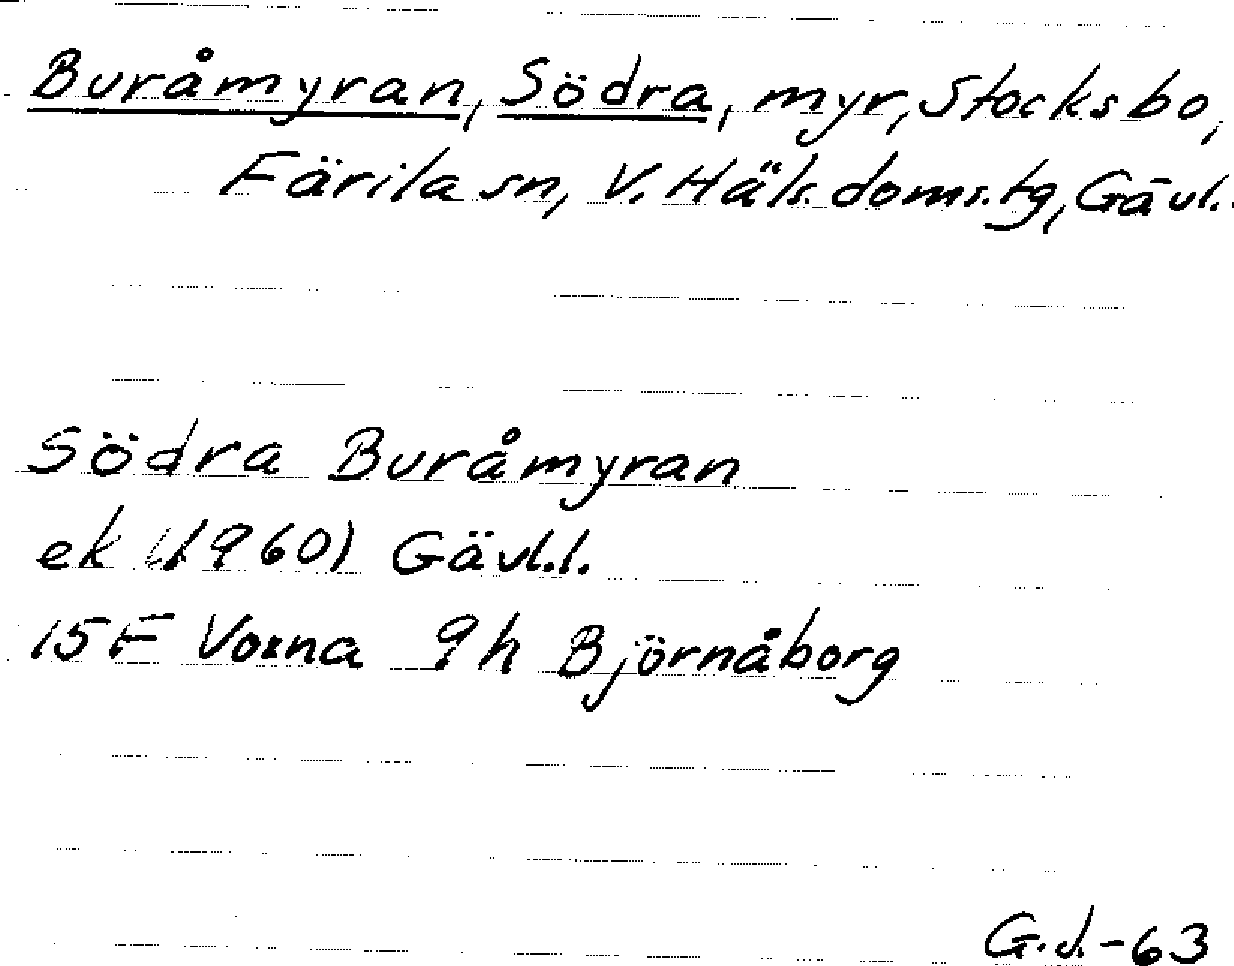 Buråmyran, Södra, myr, Stocksbo,
Färila sn, V. Häls. doms.tg, Gävl..
Södra Buråmyran
ek (1960) Gävl.l.
15F Voxna 9h Björnåborg
G.J.-63